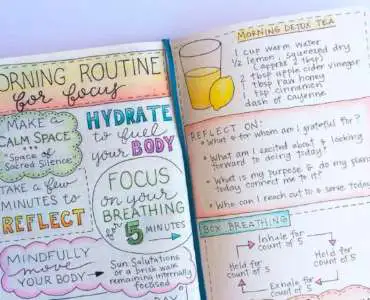 MORNING ROUTINE
for focus
MAKE A
CALM SPACE
Space of
Sacred Silence
TAKE A few
MINUTES to
REFLECT
HYDRATE
to fuel
your BODY
FOCUS
on your
BREATHING
for 5
MINUTES
MINDFULLY
move
YOUR BODY
Sun Salutations
or a brisk walk
remaining internally
focused
DAY
MORNING DETOX TEA
1 cup warm water
1/2 lemon, squeezed dry
(approx 2 tbsp)
2 tbsp apple cider vinegar
1 tbsp raw honey
1 tsp cinnamon
dash of cayenne
REFLECT ON:
• What & for whom am I grateful for?
• What am I excited about & looking
forward to doing today?
• What is my purpose & do my plans
today connect me to it?
• Who can I reach out to & some today
BOX BREATHING
Inhale for
count of 5
Hold for
count of 5
Exhale for
count of 5
Hold for
count of 5